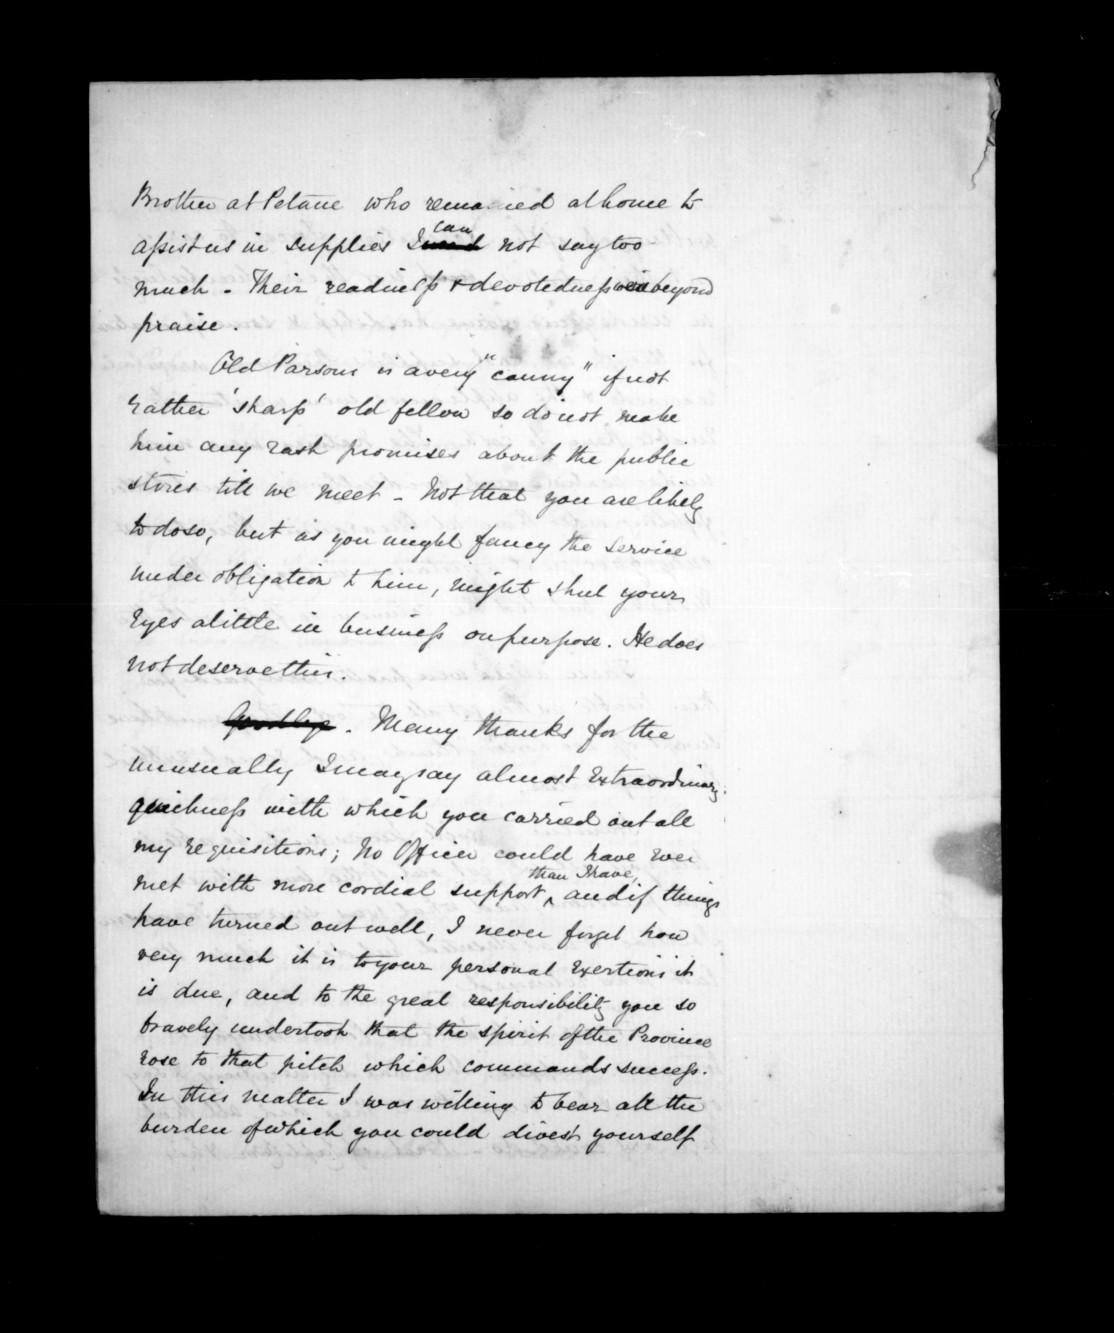 Brother at Petane who remained at home to
assist us in supplies I can not say too
much - Their readiness & devotedness was beyond
praise.
Old Parsons is a very "canny" if not
rather 'sharp' old fellow so do not make
him any rash promises about the public
stores till we meet - Not that you are likely
to do so, but as you might fancy the Service
under obligation to him, might shut your
Eyes a little in business on purpose. He does
not deserve this.
Goodbye. Many thanks for the
unusually I may say almost Extraordinary
quickness with which you carried out all
my requisitions; No Officer could have ever
met with more cordial support, than I have, and if things
have turned out well, I never forget how
very much it is to your personal Exertions it
is due, and to the great responsibility you so
bravely undertook that the spirit of the Province
rose to that pitch which commands success.
In this matter I was willing to bear all the
burden of which you could divest yourself